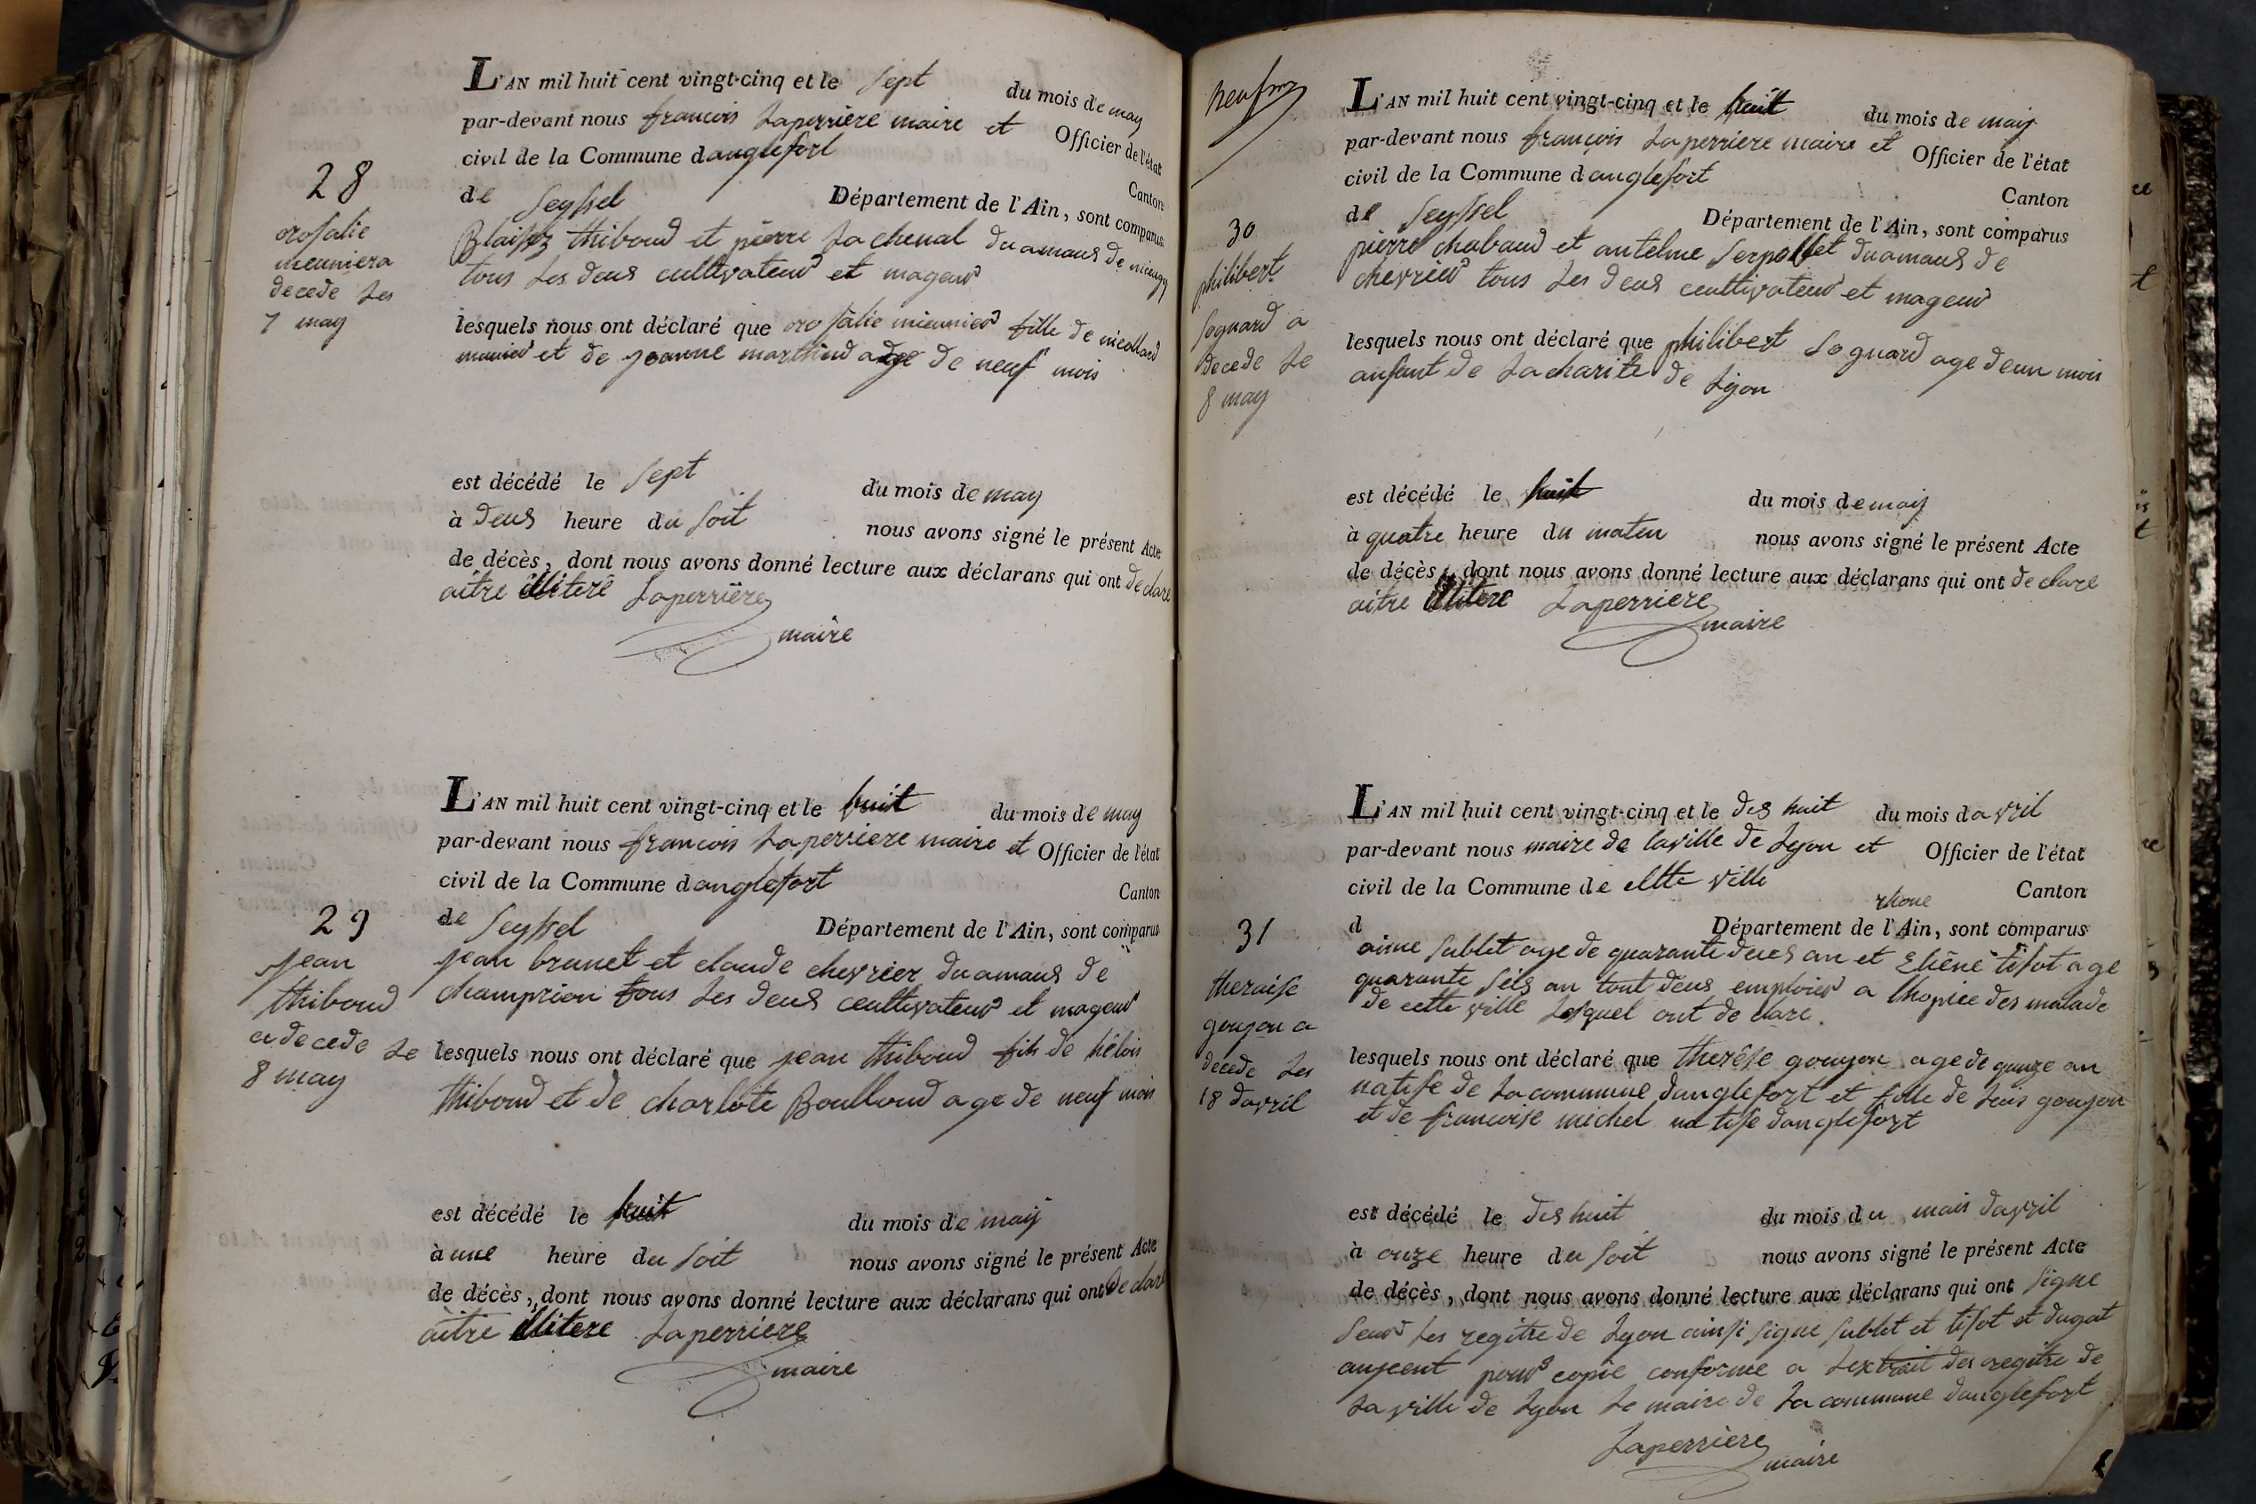 L'AN mil huit cent vingt-cinq et le sept du mois de may
par-devant nous francois Laperriere maire et Officier de l'état
civil de la Commune danglefort Canton
de Seyssel Département de l'Ain, sont comparus
Blaise thiboud et pierre La chenal du amaus de
tous Les deus cultivateur et mageur
28
orosalie
meuniera
decede Les
7 may
lesquels nous ont déclaré que orosalie mieunier fille de nicollard
munier et de jeanne marthind adge de neuf mois
est décédé le sept du mois de may
à deus heure du soit nous avons signé le présent Acte
de décès, dont nous avons donné lecture aux déclarans qui ont declare
aitre illiteré Laperriere
maire
L'AN mil huit cent vingt-cinq et le huit du mois de may
par-devant nous francois Laperriere maire et Officier de l'état
civil de la Commune danglefort Canton
de Seyssel Département de l'Ain, sont comparus
jean brunet et claude chevrier du amaus de
champrion tous Les deus ceultivateur et mageur
29
jean
thiboud
a decede Le
8 may
lesquels nous ont déclaré que jean thiboud fils de hélois
thiboud et de charlote Boulloud age de neuf mois
est décédé le huit du mois de maij
à une heure du soit nous avons signé le présent Acte
de décès, dont nous avons donné lecture aux déclarans qui ont declare
aitre illitere Laperriere
maire
neuf
L'AN mil huit cent vingt-cinq et le huit du mois de maij
par-devant nous françois Laperriere maire et Officier de l'état
civil de la Commune danglefort Canton
de Seyssel Département de l'Ain, sont comparus
pierre chabaud et antelme Serpollet du amaus de
chevrieu tous Les deus ceultivateur et mageur
30
philibert
soguard a
decede Le
8 may
lesquels nous ont déclaré que philibert Soguard age deun mois
anfant de La charite de Lijon
est décédé le huit du mois de maij
à quatre heure du maten nous avons signé le présent Acte
de décès, dont nous avons donné lecture aux déclarans qui ont declare
aitre illitere Laperriere
maire
L'AN mil huit cent vingt-cinq et le des huit du mois davril
par-devant nous maire de laville de Lyon et Officier de l'état
civil de la Commune de ellte ville Canton
rhone
d Département de l'Ain, sont comparus
aime sublet age de quarante deus an et Etiene tisot age
quarante seis an tout deus emploier a lhopice des malade
de cette ville Lesquel ont declare.
31
theraise
goujon a
decede Les
18 davril
lesquels nous ont déclaré que therése goujon age de qunze an
natife de La commune danglefort et fille de Leuis goujon
et de francoise michel natife danglefort
est décédé le des huit du mois du mois davril
à onze heure du soit nous avons signé le présent Acte
de décès, dont nous avons donné lecture aux déclarans qui ont signe
seur Les regitre de Lyon ainsi signe sublet et tisot et dugat
anjeent pour copie conforme a Lextrait des regitre de
La ville de Lyon Le maire de La commune danglefort
Laperriere
maire